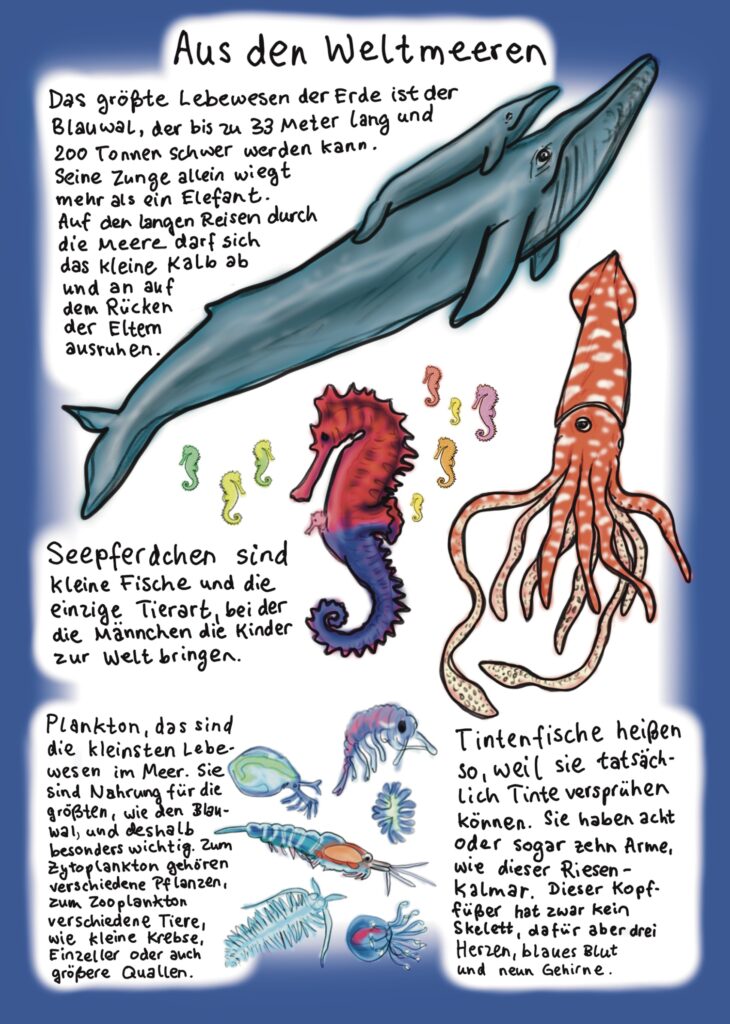 Aus den Weltmeeren
Das größte Lebewesen der Erde ist der
Blauwal, der bis zu 33 Meter lang und
200 Tonnen schwer werden kann.
Seine Zunge allein wiegt
mehr als ein Elefant.
Auf den langen Reisen durch
die Meere darf sich
das kleine Kalb ab
und an auf
dem Rücken
der Eltern
ausruhen.
Seepferdchen sind
kleine Fische und die
einzige Tierart, bei der
die Männchen die Kinder
zur Welt bringen.
Plankton, das sind
die kleinsten Lebe-
wesen im Meer. Sie
sind Nahrung für die
größten, wie den Blau-
wal, und deshalb
besonders wichtig. Zum
Zytoplankton gehören
verschiedene Pflanzen,
zum Zooplankton
verschiedene Tiere,
wie kleine Krebse,
Einzeller oder auch
größere Quallen.
Tintenfische heißen
so, weil sie tatsäch-
lich Tinte versprühen
können. Sie haben acht
oder sogar zehn Arme,
wie dieser Riesen-
Kalmar. Dieser Kopf-
füßer hat zwar kein
Skelett, dafür aber drei
Herzen, blaues Blut
und neun Gehirne.